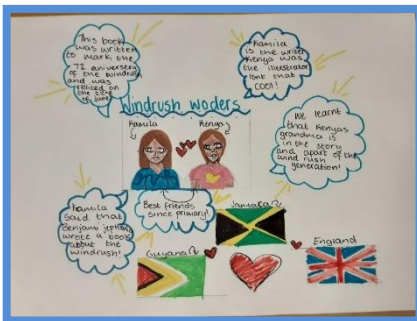 This book
was written
to mark the
72 aniversery
of the windrush
and was
on the
of June!
Kamila
is the writer
Kenya was
the illustrator
isnt that
cool!
Windrush woders
Kamila
Kenya
We learnt
that Kenyas
grandma is
in the story
and apart of the
wind rush
generation!
Kamila
said that
Benjamin
wrote a book
about the
windrush!
Best friends
since primary!
Jamaica
Guyana
England